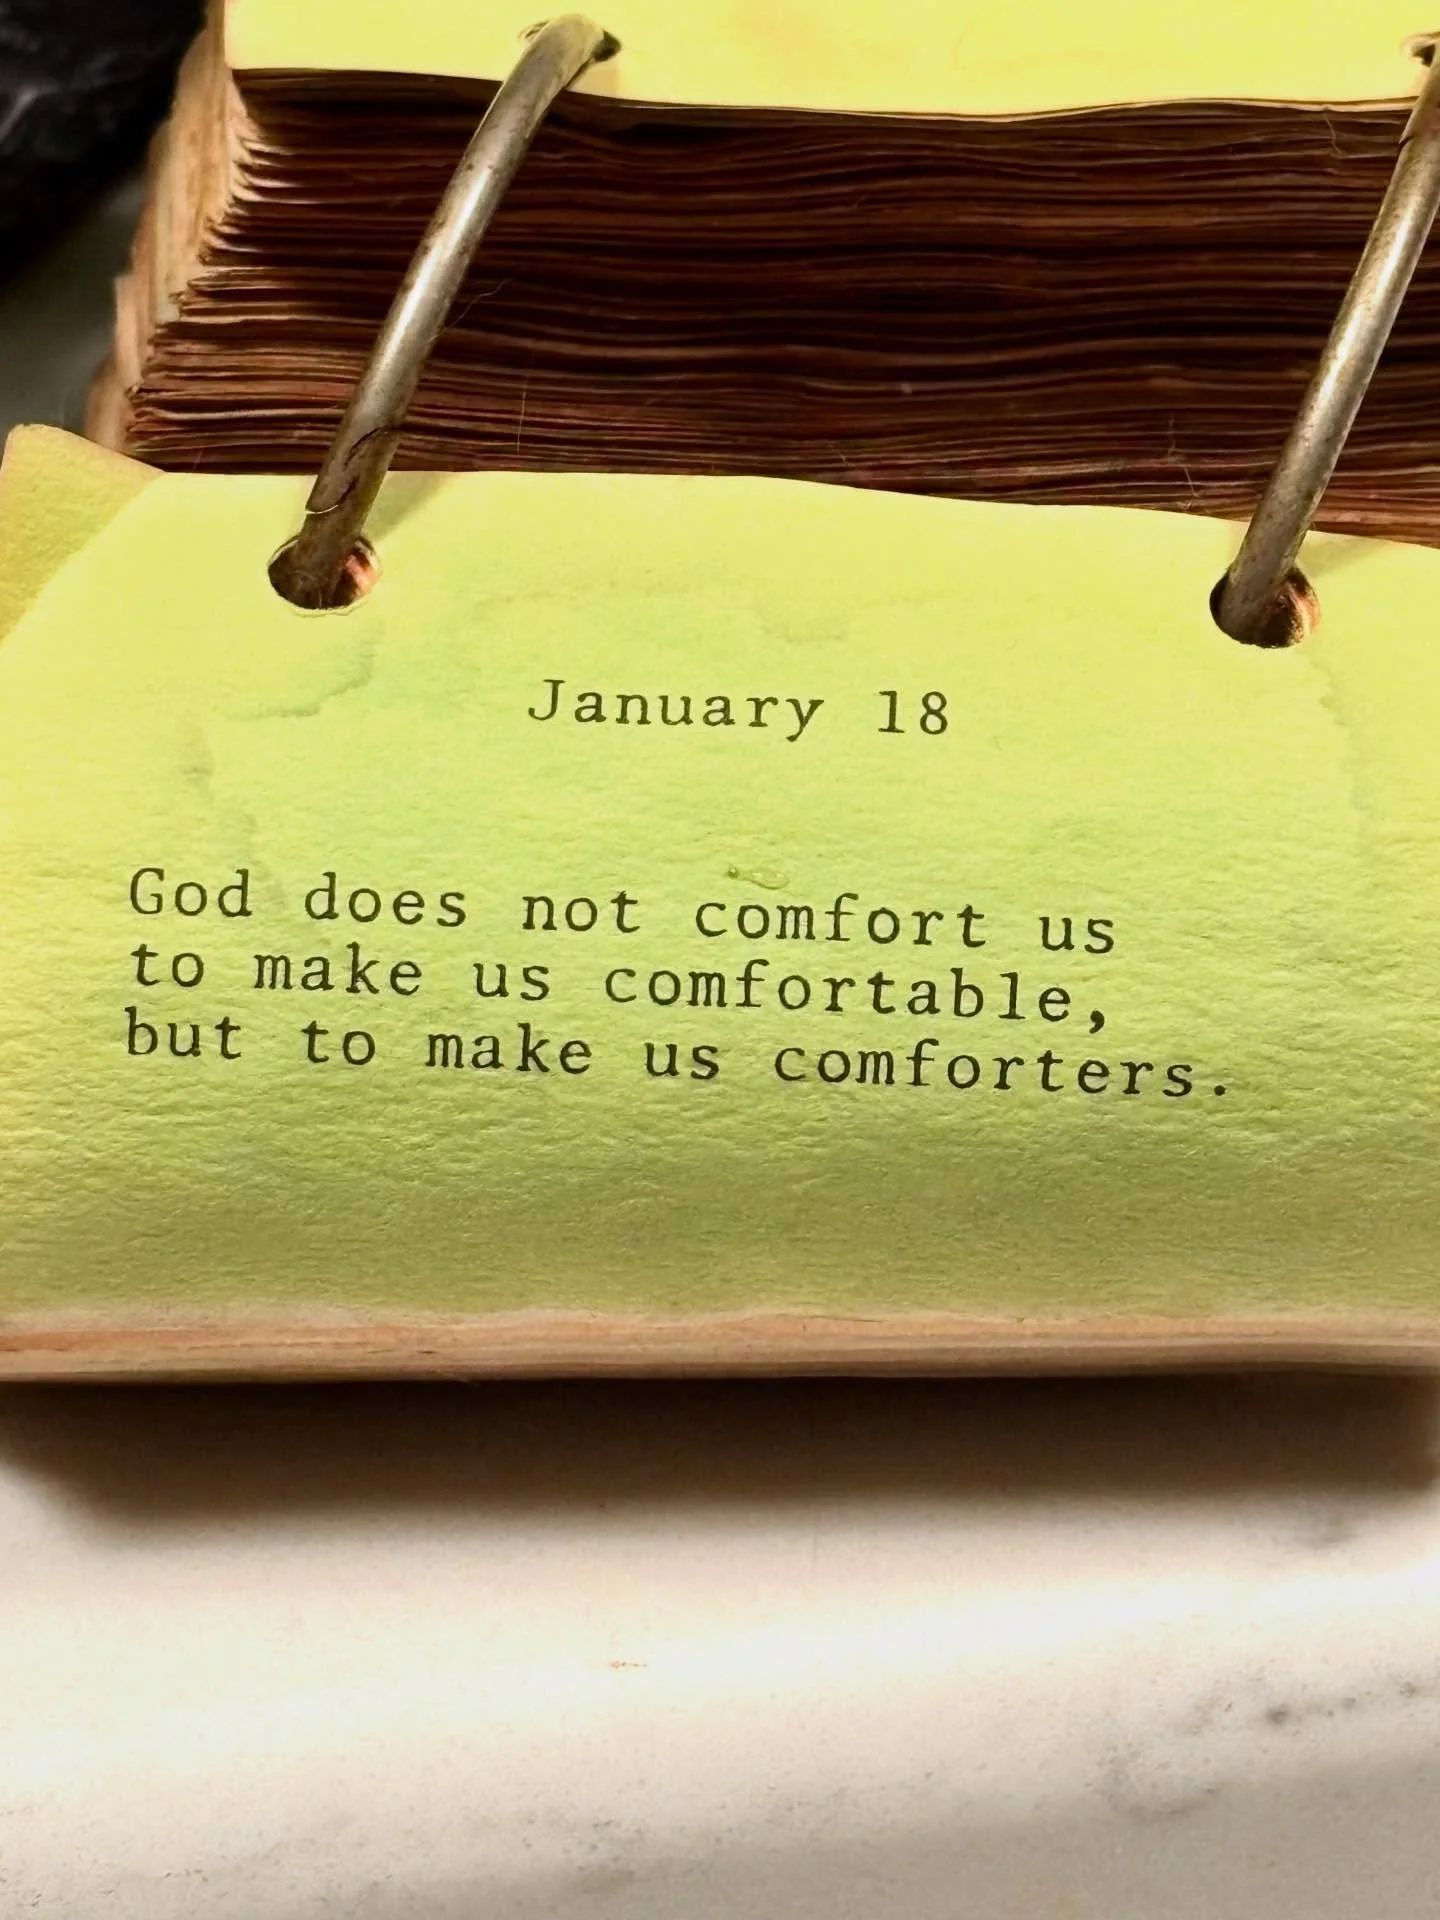 January 18
God does not comfort us
to make us comfortable,
but to make us comforters.